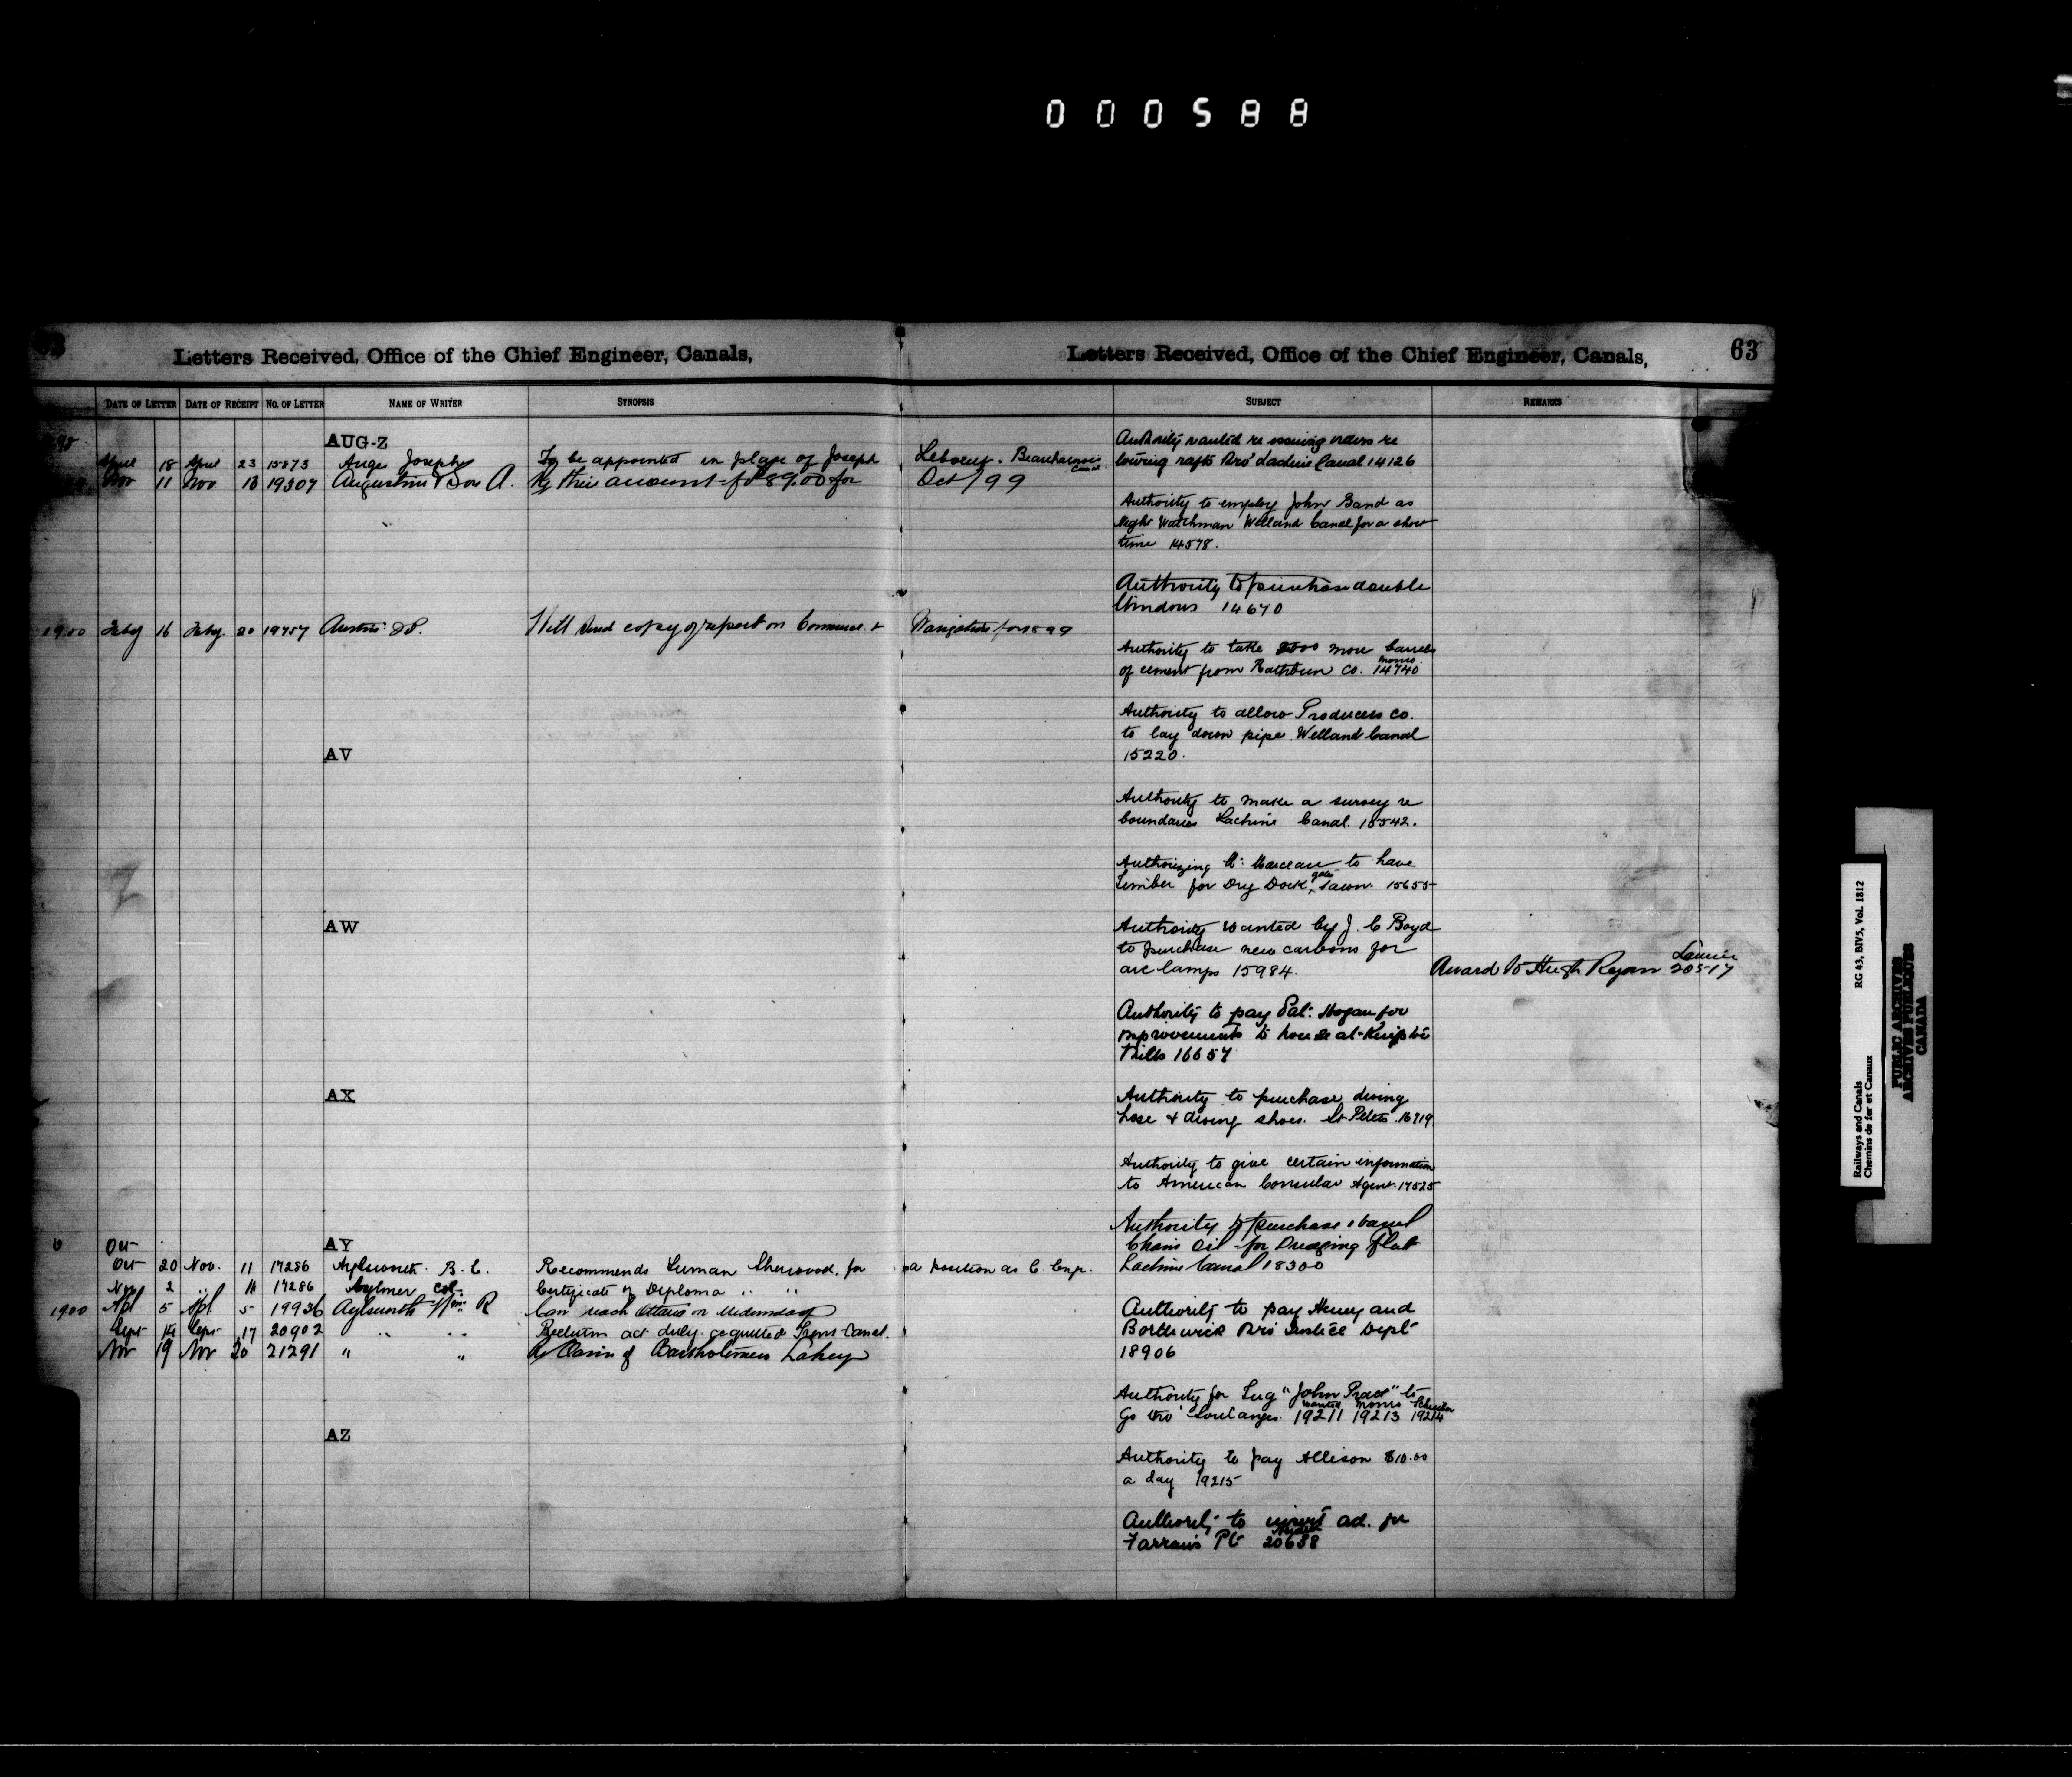 000588
Letters Received, Office of the Chief Engineer, Canals,
DATE OF LETTER DATE OF RECEIPT NO. OF LETTER NAME OF WRITER SYNOPSIS
AUG-Z
April 18 April 23 15873 Auge Joseph To be appointed in place of Joseph Leboeuf. Beauharnois Canal
Nov 11 Nov 13 19307 Augustine Bros A. Re their account for $89.00 for Oct/99
1900 Feby 16 Feby 20 19757 Austin Will send copy of report on Commerce & Navigation for 1899
AV
AW
AX
AY
Oct
Oct 20 Nov. 11 17286 Aylsworth B. C. Recommends Luman Sherwood, for a position as C. Engr.
Nov 2 " 11 17286 Aylmer Col. Certificate of Diploma " "
1900 Apl 5 Apl 5 19936 Aylsworth Wm R Can reach Ottawa on Wednesday
Sept 14 Sept 17 20902 " " Returns act duly acquitted Trent Canal.
Nov 19 Nov 20 21291 " " Re Claim of Bartholomew Lahey
AZ
Letters Received, Office of the Chief Engineer, Canals,
63
SUBJECT REMARKS
Authority wanted re issuing orders re
towing rafts thro' Lachine Canal 14126
Authority to employ John Band as
Night Watchman Welland Canal for a short
time 14578.
Authority to purchase double
Windows 14670
Authority to take 2000 more barrels
of cement from Rathbun Co. Monro 14740
Authority to allow Producers Co.
to lay down pipe. Welland Canal
15220.
Authority to make a survey re
boundaries Lachine Canal. 15542.
Authorizing Mr. Marceau to have
timber for Dry Dock gates sawn. 15655
Authority wanted by J. C Boyd
to purchase new carbons for
arc lamps 15984.
Award to Hugh Ryan Laurier 20517
Authority to pay Pat. Hogan for
improvements to house at Kingston
Mills 16657
Authority to purchase diving
hose & diving shoes. St Peters. 16919
Authority to give certain information
to American Consular Agent. 17525
Authority to purchase 1 barrel
Chain Oil for Dredging fleet
Lachine Canal 18300
Authority to pay Henry and
Borthwick thro' Justice Dept
18906
Authority for Tug "John Pratt" to
Go thro' Soulanges. wanted 19211 Monro 19213 19214
Authority to pay Allison $10.00
a day 19215
Authority to insert ad. for
Farran's Pt 20638
Railways and Canals RG 43, BIV5, Vol. 1812
Chemins de fer et Canaux
PUBLIC ARCHIVES
ARCHIVES PUBLIQUES
CANADA